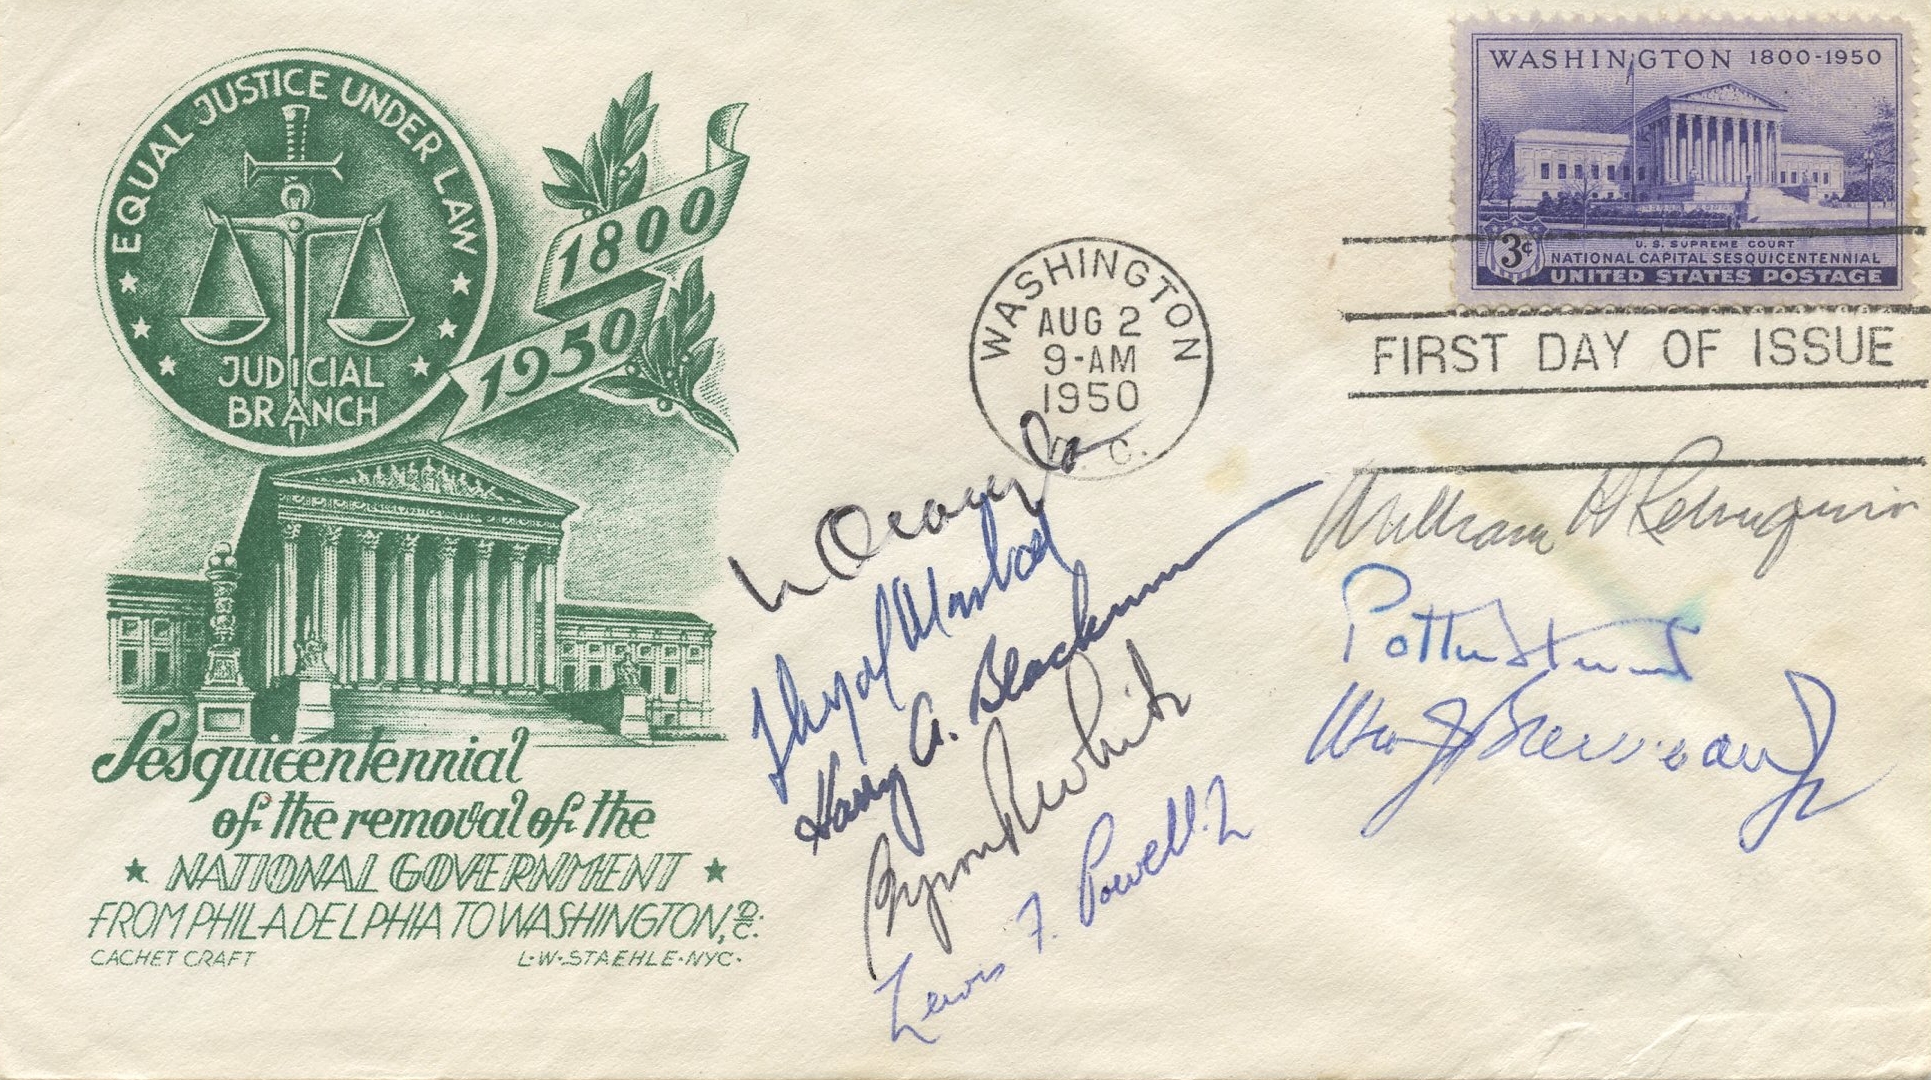 EQUAL JUSTICE UNDER LAW
JUDICIAL
BRANCH
1800
1950
Sesquicentennial
of the removal of the
NATIONAL GOVERNMENT
FROM PHILADELPHIA TO WASHINGTON, D.C.
CACHET CRAFT L·W·STAEHLE·NYC·
WASHINGTON
AUG 2
9-AM
1950
D. C.
WASHINGTON 1800-1950
3¢
U. S. SUPREME COURT
NATIONAL CAPITAL SESQUICENTENNIAL
UNITED STATES POSTAGE
FIRST DAY OF ISSUE
Thurgood Marshall
Harry A. Blackmun
Byron R White
Lewis F. Powell Jr
William H Rehnquist
Potter Stewart
Wm J Brennan Jr